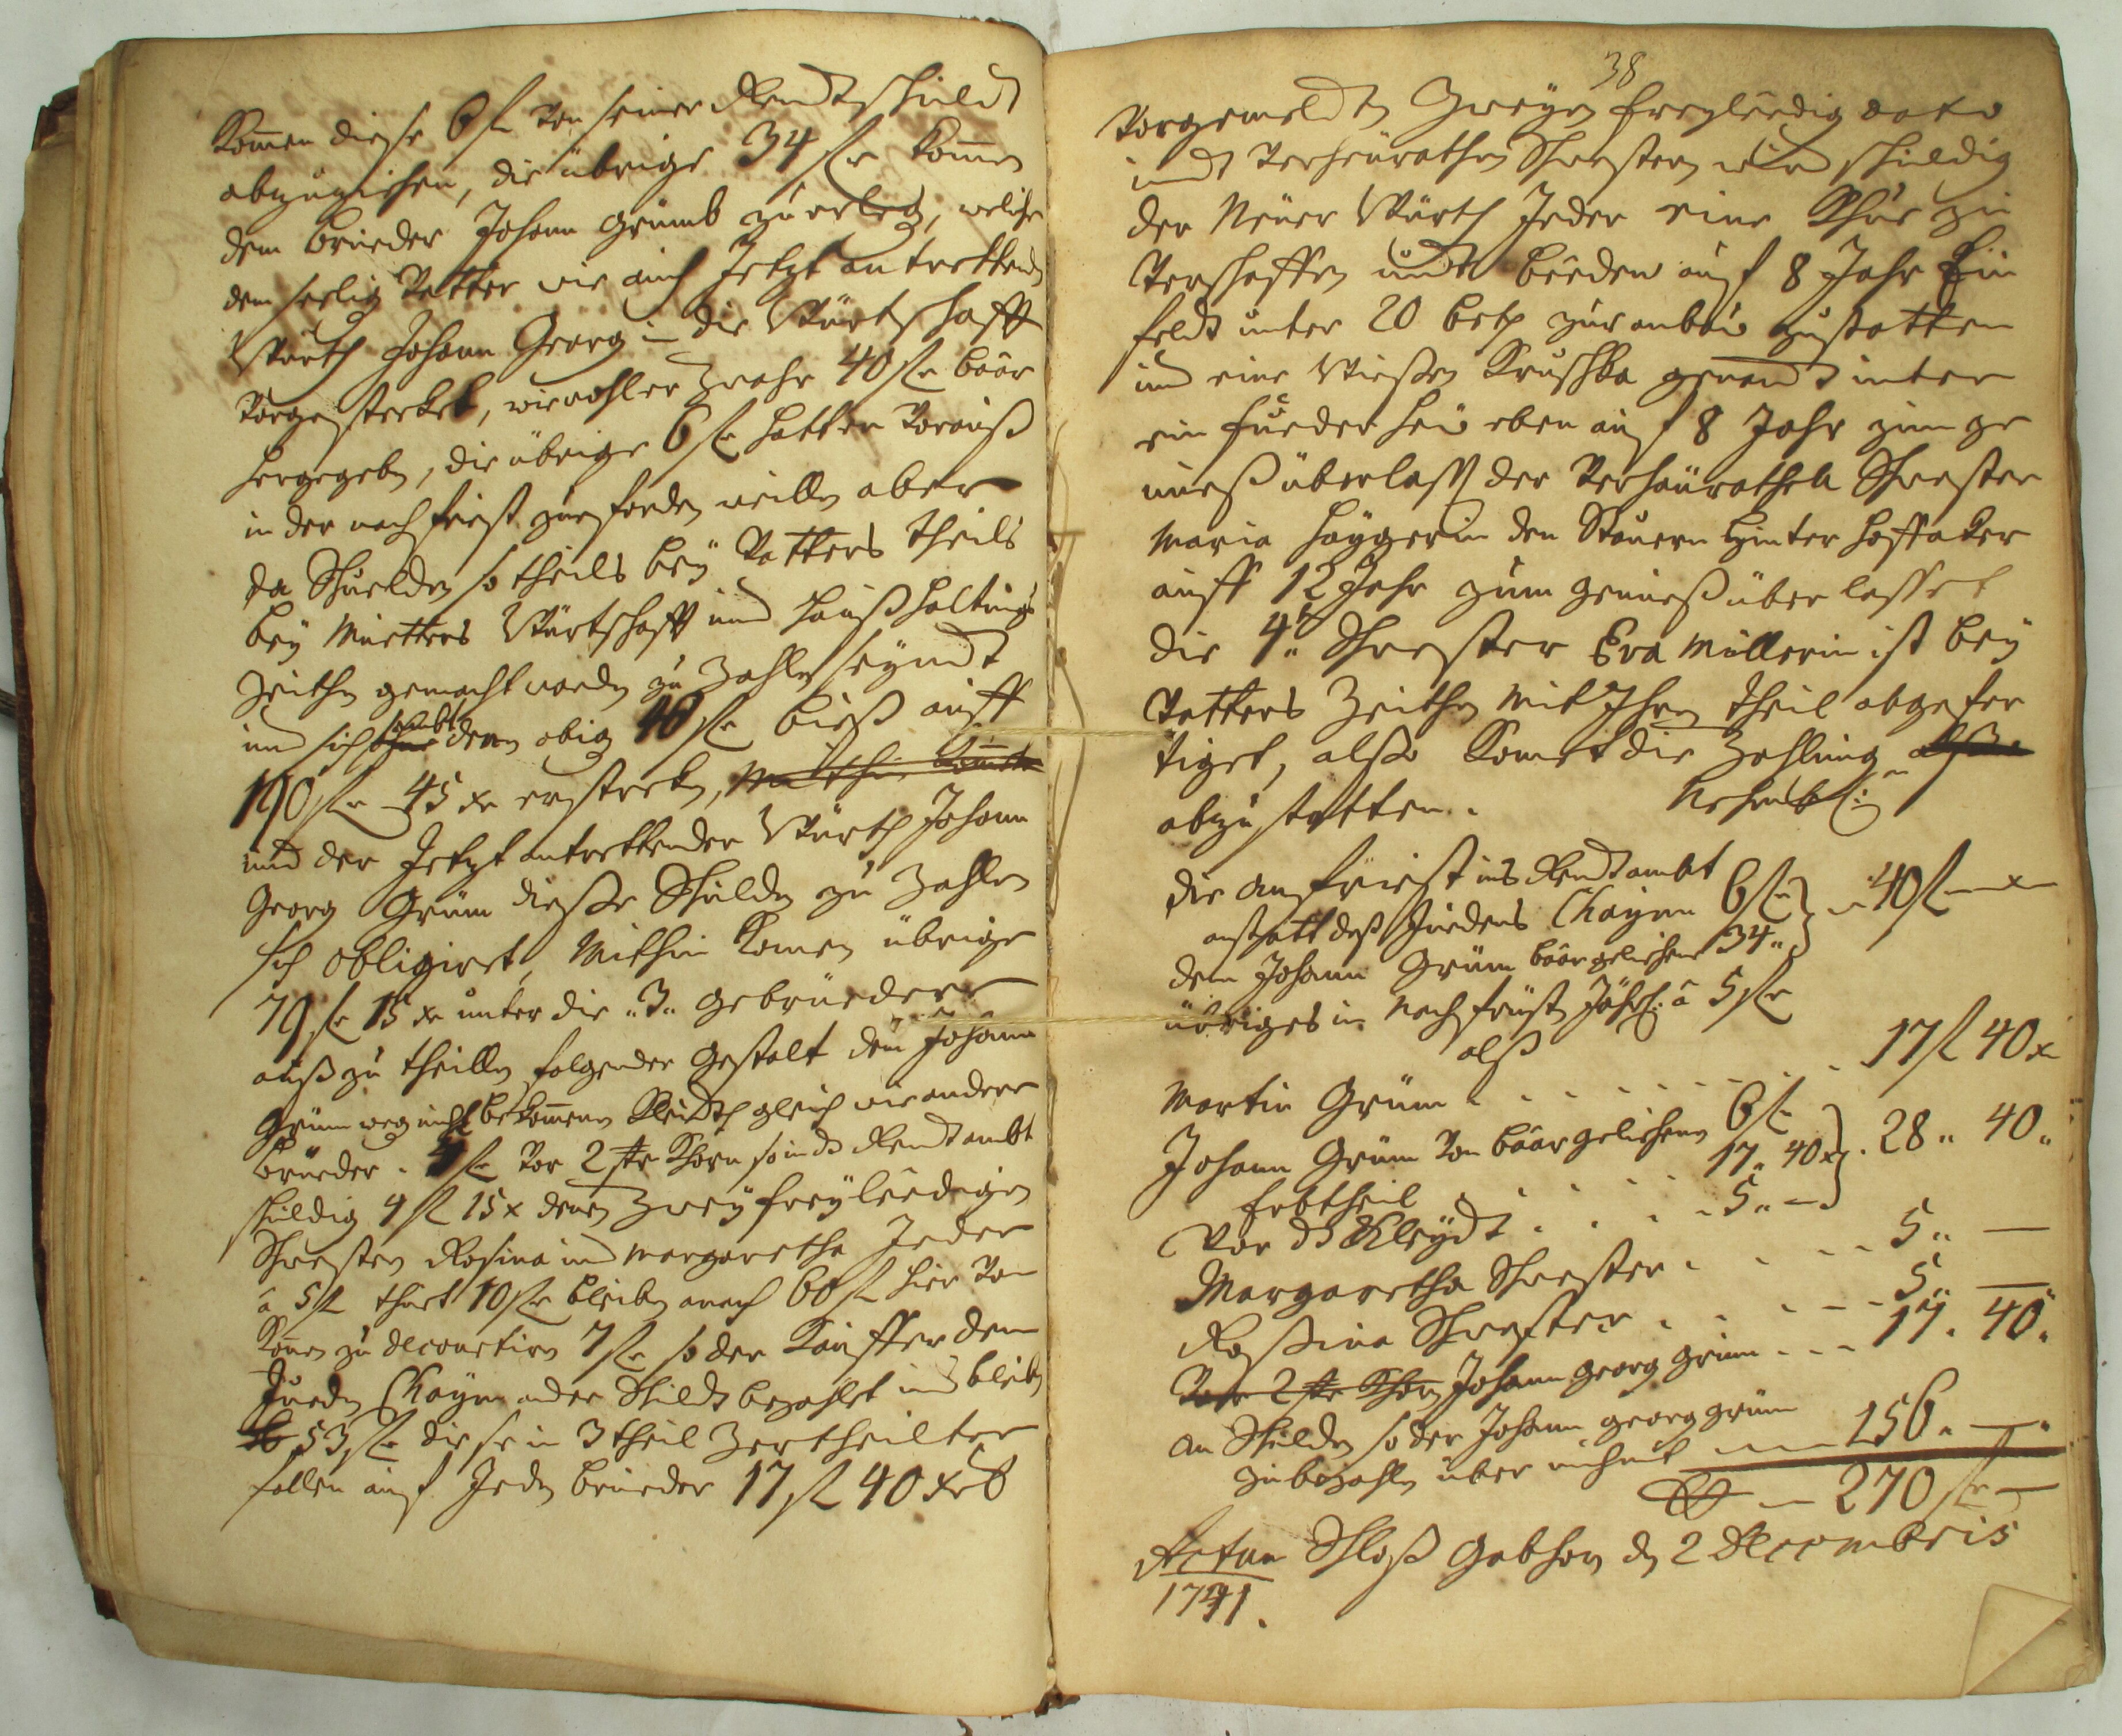 Kom̅en diese 6 fl von seiner Rendtschuld
abzuziehen, die übrige 34 fl kom̅en
dem brueder Johann Grümb zu erlegen, welche
dem seelig Vatter wie auch Jetzt antrettend
Würth Johann Georg in die Würtschafft
vorgestrekhet, wie wohl er zwahr 40 fl baar
hergegeben, die übrige 6 fl hatt er vorauß
in der nachfrist zu fordern weillen aber
da Schuelden so theils beÿ Vatters theils
beÿ Muetters Würtschafft und Haußhaltungs
Zeithen gemacht worden zu Zahlen seÿndt
und sich sambt denen obig 40 fl bieß auff
190 fl 45 xr erstreken, mithin kommete
und der Jetzt antrettender Würth Johann
Georg Grüm diese Schulden zu Zahlen
sich obligiret, Mithin komen übrige
79 fl 15 xr unter die 3 gebrüedere
auß zu theillen folgender gestalt dem Johann
Grüm weg nicht bekommenen Kleidts gleich wie andere
brüeder 5 fl vor 2 str Khorn so ins Rendtambt
schuldig 4 fl 15 x denen Zweÿ freÿleedigen
Schwestern Rosina und Margaretha Jeder
a 5 fl thuet 10 fl bleiben annoch 60 fl hier von
komen zu decourtiren 7 fl so der Kauffer dem
Jueden Chaÿm an der Schuldt bezahlet und bleiben
53 fl diese in 3 theil Zertheilter
fallen auf Jeden brueder 17 fl 40 xr
38
Vorgemeldten Zweÿen freÿleedig dato
undt verheurathen Schwestern wird schuldig
der Neuer Würth Jeder eine Khue zu
verschaffen undt beeden auf 8 Jahr Ein
feldt unter 20 betz zur anbau zustatten
und eine Wießen Kruschka genandt unter
ein fueder heu eben auf 8 Jahr zum ge
nueß überlasst der verheurathen Schwester
Maria Haÿgerin den Steuern hinter hoffaker
auff 12 Jahr zum genueß überlasset
die 4te Schwester Eva Müllerin ist beÿ
Vatters Zeithen mit Ihren theil abgefer
tiget, also komet die Zahlung also
abzustatten. Nehmbl:
die anfrist ins Rendtambt
anstatt deß Juedens Chaÿm 6 fl } 40 fl — x
dem Johann Grüm baar geliehene 34 „
übriges in Nachfrist Jährl: â 5 fl
alß
Martin Grüm . . . . . . . 17 fl 40 x
Johann Grüm von baar geliehenen 6 fl
Erbtheil . . . . 17 „ 40 x } . 28 „ 40 „
Vor ds Kleÿdt . . . . 5 „ —
Margaretha Schwester . . . . 5 „ —
Rossina Schwester . . . . 5 „ —
Vor 2 str Khorn Johann Georg Grüm - - - 17 „ 40 „
An Schulden so der Johann Georg Grüm
zu bezahlen über nihmt — 156 „ — „
— 270 fl —
Actum Schloß Gabhorn den 2 Decembris
1741.